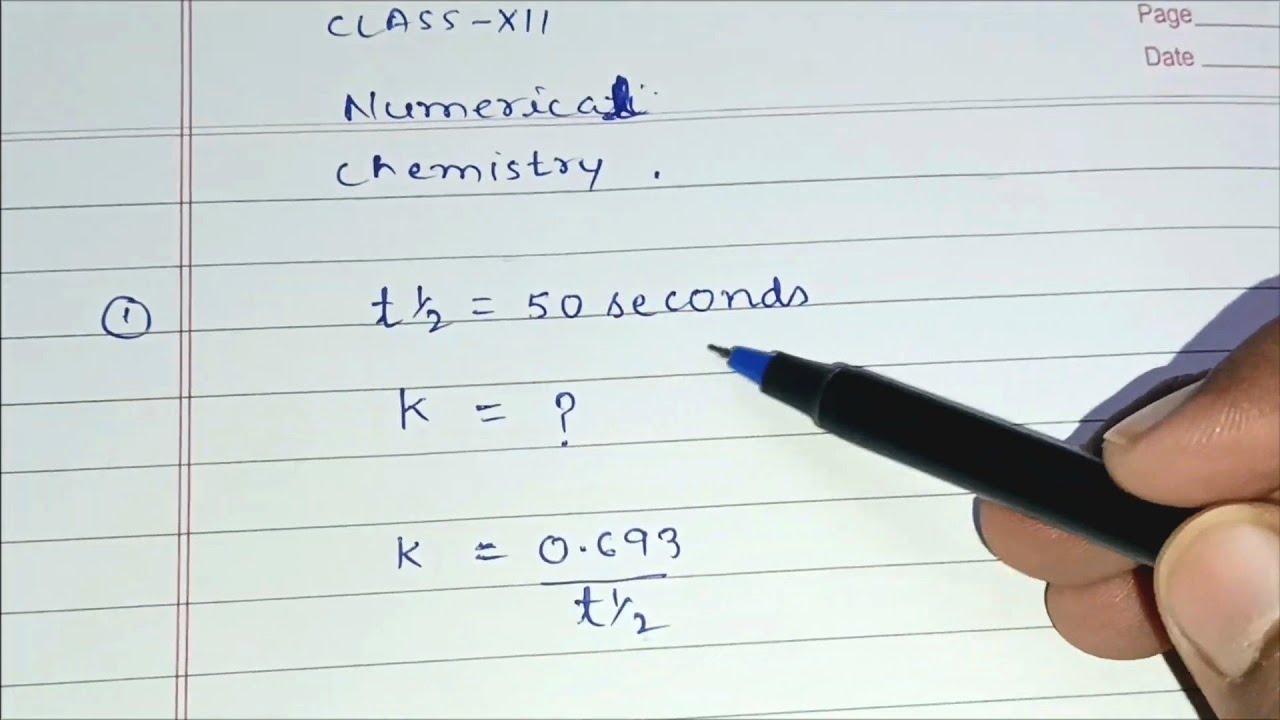 CLASS-XII
Page
Date
Numerical
chemistry .
① t 1/2 = 50 seconds
K = ?
K = 0.693
t 1/2